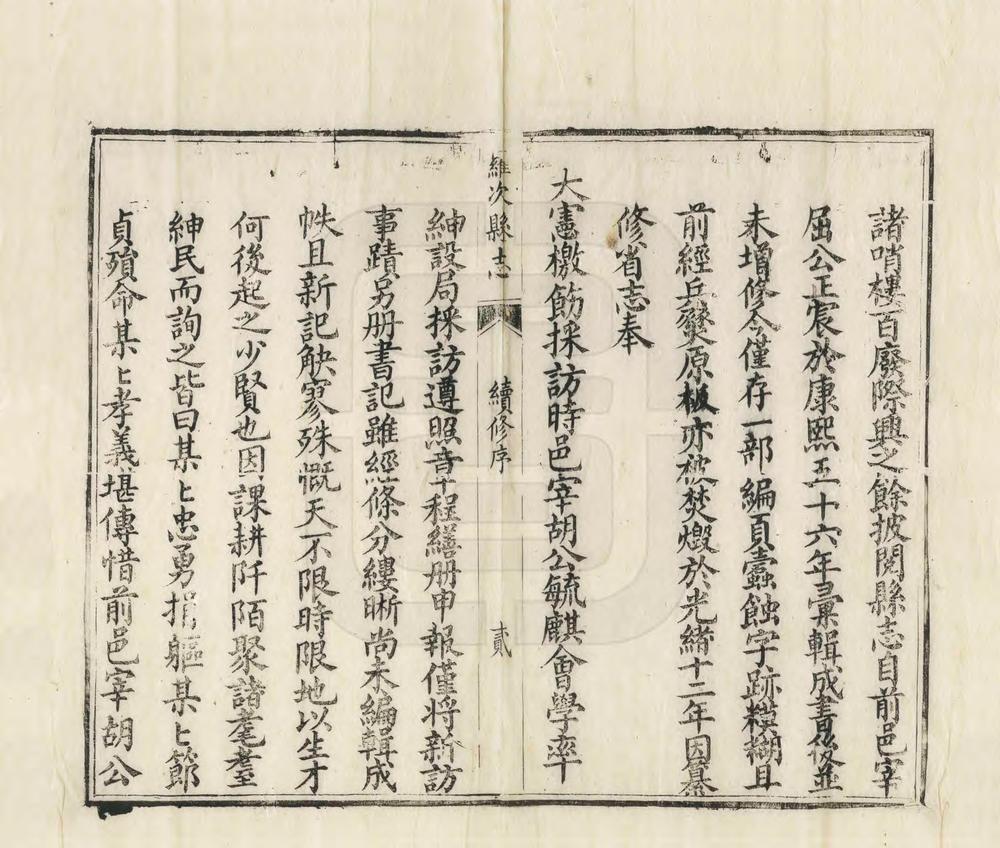 諸哨樓百廢際興之餘披閱縣志自前邑宰
屈公正宸於康熙五十六年彙輯成書後並
未增修今僅存一部編頁蠹蝕字跡糢糊且
前經兵燹原板亦被焚燬於光緒十二年因纂
修省志奉
大憲檄飭採訪時邑宰胡公毓麒會學率
羅次縣志
續修序
貳
紳設局採訪遵照章程繕册申報僅將新訪
事蹟另册書記雖經條分縷晰尚未編輯成
帙且新記觖寥殊慨天不限時限地以生才
何後起之少賢也因課耕阡陌聚諸耄耋
紳民而詢之皆曰某上忠勇捐軀某上節
貞殞命某上孝義堪傳惜前邑宰胡公